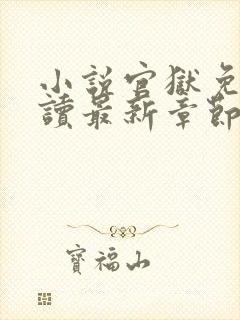 小說官獄免
讀最新章節
寶福山